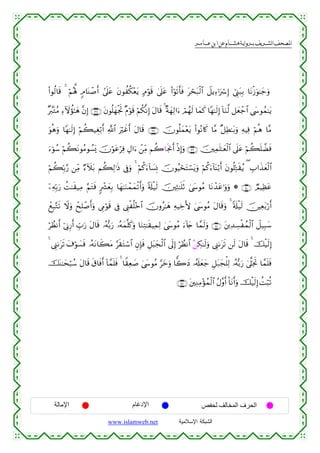 المصحف الشريف برواية هشام عن ابن عامر
وَجَٰوَزْنَا بِبَنِىٓ إِسْرَٰٓءِيلَ ٱلْبَحْرَ فَأَتَوْا۟ عَلَىٰ قَوْمٍ يَعْكُفُونَ عَلَىٰٓ أَصْنَامٍ لَّهُمْ قَالُوا۟
يَٰمُوسَى ٱجْعَل لَّنَآ إِلَٰهًا كَمَا لَهُمْ ءَالِهَةٌ قَالَ إِنَّكُمْ قَوْمٌ تَجْهَلُونَ إِنَّ هَٰٓؤُلَآءِ مُتَبَّرٌ
مَّا هُمْ فِيهِ وَبَٰطِلٌ مَّا كَانُوا۟ يَعْمَلُونَ قَالَ أَغَيْرَ ٱللَّهِ أَبْغِيكُمْ إِلَٰهًا وَهُوَ
فَضَّلَكُمْ عَلَى ٱلْعَٰلَمِينَ وَإِذْ أَنجَاكُم مِّنْ ءَالِ فِرْعَوْنَ يَسُومُونَكُمْ سُوٓءَ
ٱلْعَذَابِ يُقَتِّلُونَ أَبْنَآءَكُمْ وَيَسْتَحْيُونَ نِسَآءَكُمْ وَفِى ذَٰلِكُم بَلَآءٌ مِّن رَّبِّكُمْ
عَظِيمٌ وَوَٰعَدْنَا مُوسَىٰ ثَلَٰثِينَ لَيْلَةً وَأَتْمَمْنَٰهَا بِعَشْرٍ فَتَمَّ مِيقَٰتُ رَبِّهِۦٓ
أَرْبَعِينَ لَيْلَةً وَقَالَ مُوسَىٰ لِأَخِيهِ هَٰرُونَ ٱخْلُفْنِى فِى قَوْمِى وَأَصْلِحْ وَلَا تَتَّبِعْ
سَبِيلَ ٱلْمُفْسِدِينَ وَلَمَّا جَآءَ مُوسَىٰ لِمِيقَٰتِنَا وَكَلَّمَهُۥ رَبُّهُۥ قَالَ رَبِّ أَرِنِىٓ أَنظُرْ
إِلَيْكَ قَالَ لَن تَرَىٰنِى وَلَٰكِنُ ٱنظُرْ إِلَى ٱلْجَبَلِ فَإِنِ ٱسْتَقَرَّ مَكَانَهُۥ فَسَوْفَ تَرَىٰنِى
فَلَمَّا تَجَلَّىٰ رَبُّهُۥ لِلْجَبَلِ جَعَلَهُۥ دَكًّا وَخَرَّ مُوسَىٰ صَعِقًا فَلَمَّآ أَفَاقَ قَالَ سُبْحَٰنَكَ
تُبْتُ إِلَيْكَ وَأَنَا۠ أَوَّلُ ٱلْمُؤْمِنِينَ
الحرف المخالف لحفص الإدغام الإمالة
الشبكة الإسلامية www.islamweb.net